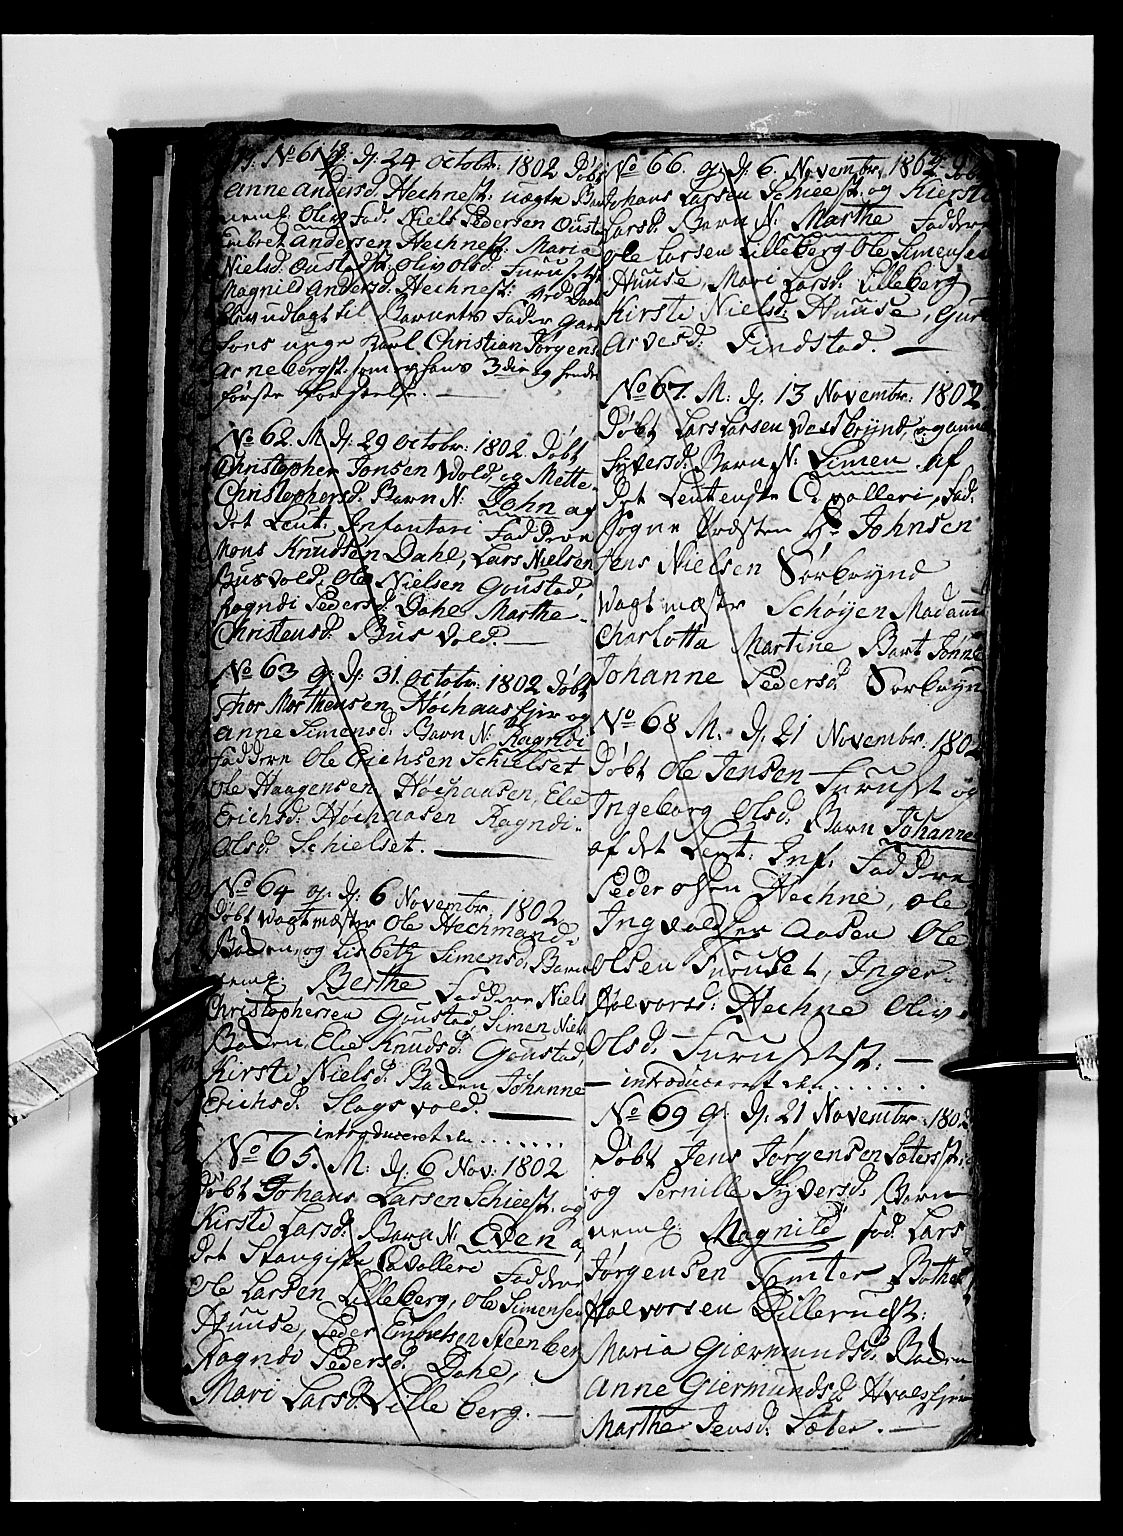 No 61 q: dj: 24 octobr: 1802 Døbt
anne andersd. Hechnest: uægte Barn
nemlg. Oliv fad. Niels Pedersen Ousta
Embret andersen Hechnest: Maria
Nielsd. Oustadst: Oliv Olsd. Furusetst
Magnild andersd. Hechnest: ved Daab
blev udlagt til Barnets Fader
unge Karl Christian Jørgens
Arnebergst. som er hans 3die og hendes
første
No 62. M. dj: 29 octobr: 1802. Døbt
Christopher Jonsen Vold, og Mette
Christophersd. Barn N: John og
det Leut: Infantari Faddere
Mons Knudsen Dahl, Lars Nielsen
Busvold, Ole Nielsen Goustad,
Ragndi Pedersd. Dahl Marthe
Christensd. Busvold.
No 63 q: dj: 31. octobr: 1802 Døbt
Thor Morthensen Høihaas Eier og
anne Simensd. Barn N: Ragndi
Faddere Ole Erichsen Schielset
Ole Haagensen, Høihaasen, Elie
Erichsd. Høihaasen Ragndi
Olsd. Schielset.
No 64 q. dj. 6 Novembr. 1802
Døbt Vagtmæster Ole Hechmand
Baden, og Lisbeth Simensd. Barn
neml. Berthe Faddere Niels
Christophersen Goustad, Simen Niels
Baden, Elie Knudsd. Goustad,
Kirsti Nielsd. Baden, Johanne
Erichsd. Slagsvold.
introduceret den.......
No 65. M: dj. 6 Nov: 1802
Døbt Johans Larsen Schieest. og
Kirsti Larsd. Barn N: Even a
det Stangiske Cavolleri Faddere
Ole Larsen Lilleberg, Ole Simensen
Huuse, Peder Embretsen Steenber
Ragndi Pedersd. Dahl,
Mari Larsd. Lilleberg.
No 66. q. dj. 6. Novembr. 1802. Døbt
Johans Larsen Schieest. og Kiersti
Larsd. Barn N. Marthe Faddere
Ole Larsen Lilleberg Ole Simensen
Huuse, Mari Larsd. Lilleberg
Kirsti Nielsd. Huuse, Guri
Arvesd. Findstad.
No 67. M: dj. 13 Novembr: 1802
Døbt Lars Larsen Vestbrynd, og anne
Syversd. Barn N: Simen af
det Leutenske Cavolleri, fad.
Sogne Præsten Hr Johnsen
Jens Nielsen Sørbrynd
Vagtmæster Schøyen Madame
Charlotta Martine Bart
Johanne Pedersd. Sørbryn
No 68 M. dj. 21 Novembr. 1802
Døbt Ole Jensen Furusst og
Ingeborg Olsd. Barn Johanne
af det Leut: Inf. Faddere
Peder Olsen Hechne, Ole
Ingvaldsen Aasen Ole
Olsen Furuset, Inger
Halvorsd. Hechne Oliv
Olsd. Furusetst.
introduceret den.......
No 69 q. dj. 21 Novembr. 1802
Døbt Jens Jørgensen Sæterst:
og Pernille Syversd. Barn
nemlg. Magnild fad. Lars
Jørgensen Tomter Bothel
Halvorsen Lillerudst:
Maria Giærmundsd. Baden
Anne Giermundsd. Hvalsbyen
Marthe Jensd. Sæter.